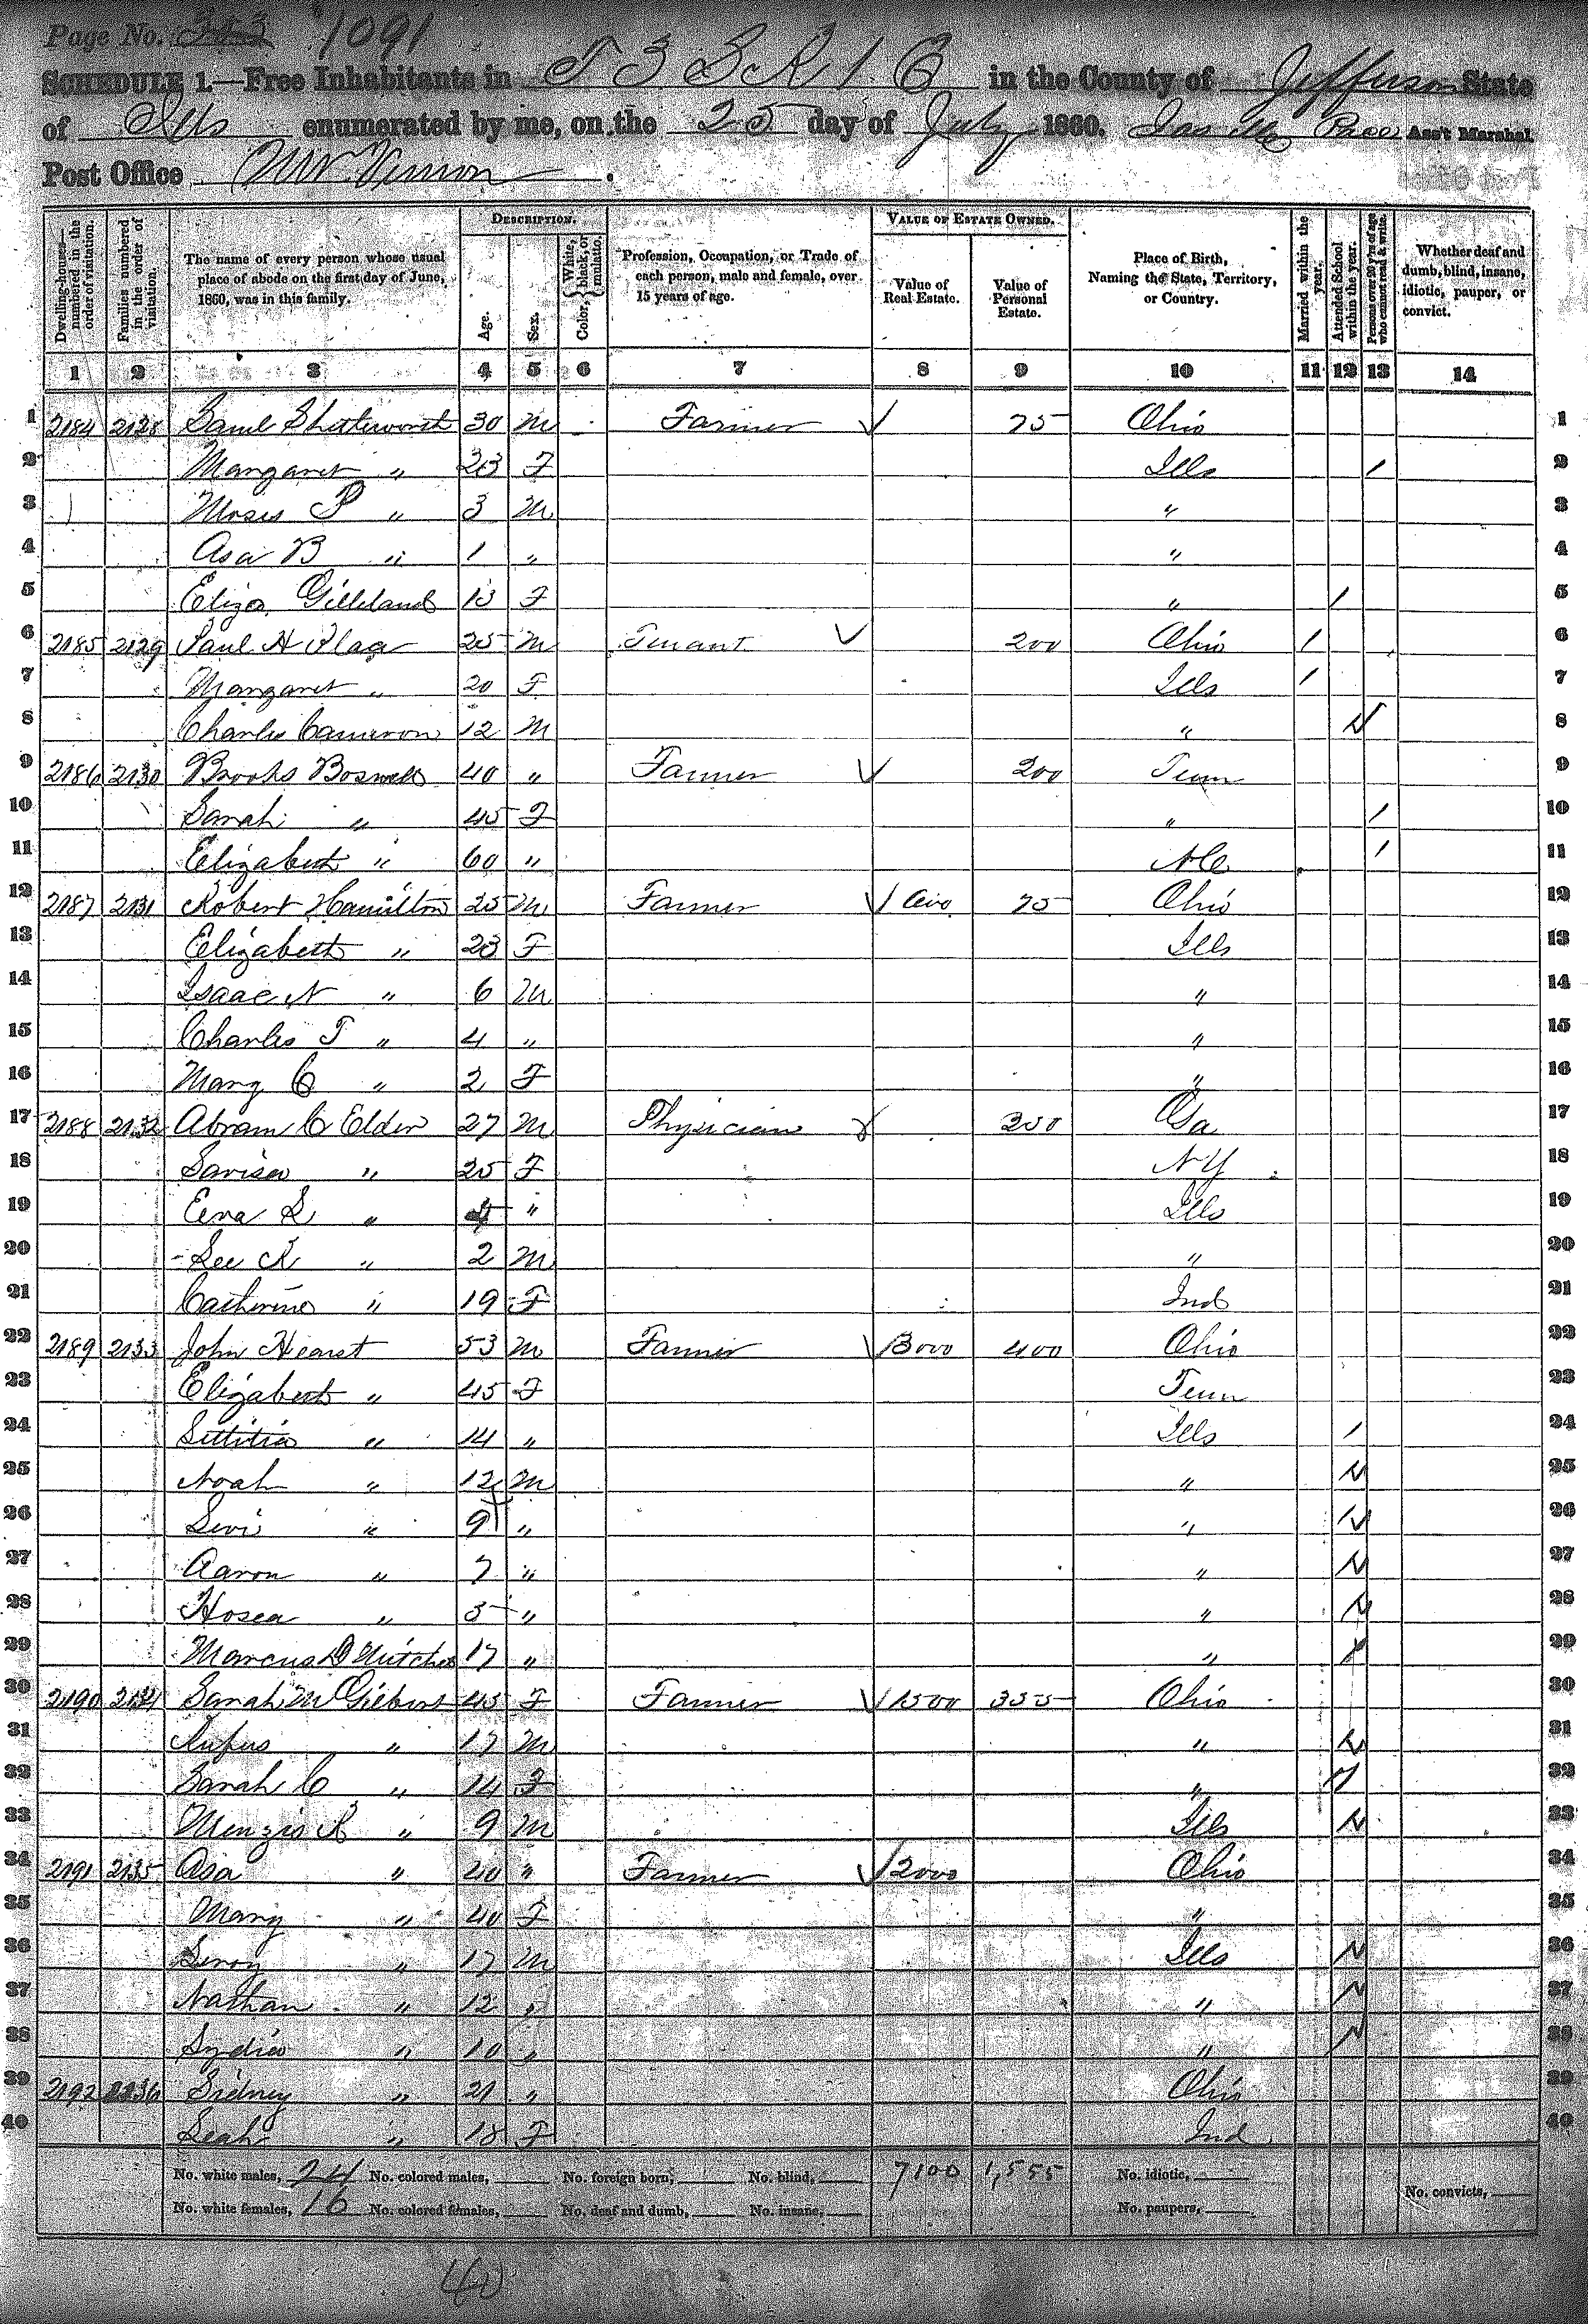 Page No. 353 1091
SCHEDULE 1.—Free Inhabitants in T 3 S R 1 E in the County of Jefferson State
of Ills enumerated by me, on the 25 day of July 1860. Pace Ass't Marshal.
Post Office Mt Vernon.
Dwelling-houses—numbered in the order of visitation. Families numbered in the order of visitation. The name of every person whose usual place of abode on the first day of June, 1860, was in this family. DESCRIPTION. Age. Sex. Color, White, black, or mulatto. Profession, Occupation, or Trade of each person, male and female, over 15 years of age. VALUE OF ESTATE OWNED. Value of Real Estate. Value of Personal Estate. Place of Birth, Naming the State, Territory, or Country. Married within the year. Attended School within the year. Persons over 20 y'rs of age who cannot read & write. Whether deaf and dumb, blind, insane, idiotic, pauper, or convict.
1 2 3 4 5 6 7 8 9 10 11 12 13 14
1 2184 2128 Saml Shuttleworth 30 M Farmer 75 Ohio 1
2 Margaret " 23 F Ills / 2
3 Moses P " 3 M " 3
4 Asa B " 1 " " 4
5 Eliza Gilleland 13 F " / 5
6 2185 2129 Paul H 25 M Tenant 200 Ohio / 6
7 Margaret " 20 F Ills / 7
8 Charles Cameron 12 M " / 8
9 2186 2130 Brooks Boswell 40 " Farmer 200 Tenn 9
10 Sarah " 45 F " / 10
11 Elizabeth " 60 " N C / 11
12 2187 2131 Robert Hamilton 25 M Farmer 600 75 Ohio 12
13 Elizabeth " 23 F Ills 13
14 Isaac N " 6 M " 14
15 Charles T " 4 " " 15
16 Mary C " 2 F " 16
17 2188 2132 Abram C Elder 27 M Physician Ga 17
18 " 25 F N Y 18
19 " 4 " Ills 19
20 Lee R " 2 M " 20
21 Catherine " 19 F Ind 21
22 2189 2133 John Hearst 53 M Farmer 3000 400 Ohio 22
23 Elizabeth " 45 F Tenn 23
24 Lettitia " 14 " Ills / 24
25 Noah " 12 M " / 25
26 Levi " 9 " " / 26
27 Aaron " 7 " " / 27
28 Hosea " 5 " " / 28
29 Marcus D Mitchel 17 " " / 29
30 2190 2134 Sarah M Gilbert 45 F Farmer 1500 355 Ohio 30
31 Rufus " 17 M " / 31
32 Sarah C " 14 F " / 32
33 Menzis R " 9 M Ills / 33
34 2191 2135 Asa " 40 " Farmer 2000 Ohio 34
35 Mary " 40 F " 35
36 Leroy " 17 M Ills / 36
37 Nathan " 12 " " / 37
38 Lydia " 10 " " / 38
39 2192 2136 Sidney " 21 " Ohio 39
40 Leah " 18 F Ind 40
No. white males, 24 No. colored males, No. foreign born, No. blind, 7100 1,555 No. idiotic,
No. white females, 16 No. colored females, No. deaf and dumb, No. insane, No. paupers, No. convicts,
40